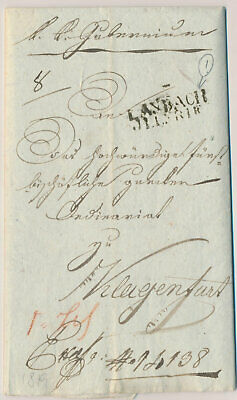 k. k. Gubernium
8
1
An
LAYBACH
ILLYRIE
Das Hochwürdige fürst
bischöfliche Gurker
Ordinariat
zu
Klagenfurt
138